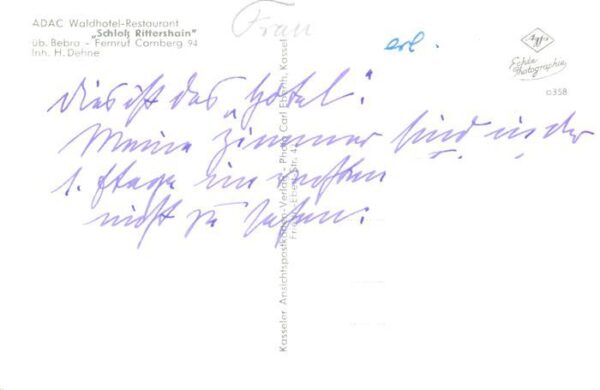 ADAC Waldhotel-Restaurant
"Schloß Rittershain"
üb. Bebra - Fernruf Cornberg 94
Inh. H. Dehne
Frau
erl.
Agfa
Echte
Photographie
o358
Dies ist das "Hotel".
Meine Zimmer sind in der
1. Etage im
nicht zu sehen.
Kasseler Ansichtspostkarten-Verlag - Photo Carl Eberth, Kassel
Friedr.-Ebert-Str. 42